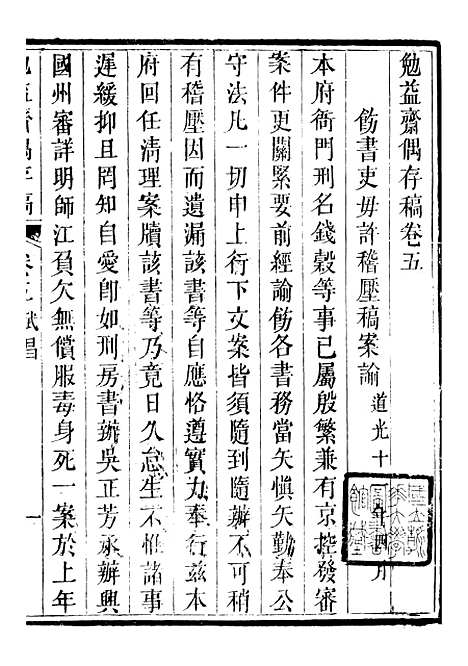 勉益齋偶存稿卷五
飭書吏毋許稽壓稿案諭 道光十一年四月
本府衙門刑名錢穀等事已屬殷繁兼有京控發審
案件更關緊要前經諭飭各書務當矢慎矢勤奉公
守法凡一切申上行下文案皆須隨到隨辦不可稍
有稽壓因而遺漏該書等自應恪遵實力奉行茲本
府回任清理案牘該書等乃竟日久怠生不惟諸事
遲緩抑且罔知自愛卽如刑房書辦吳正芳承辦興
國州審詳明師江負欠無償服毒身死一案於上年
勉益齋偶存稿 卷五 武昌 一